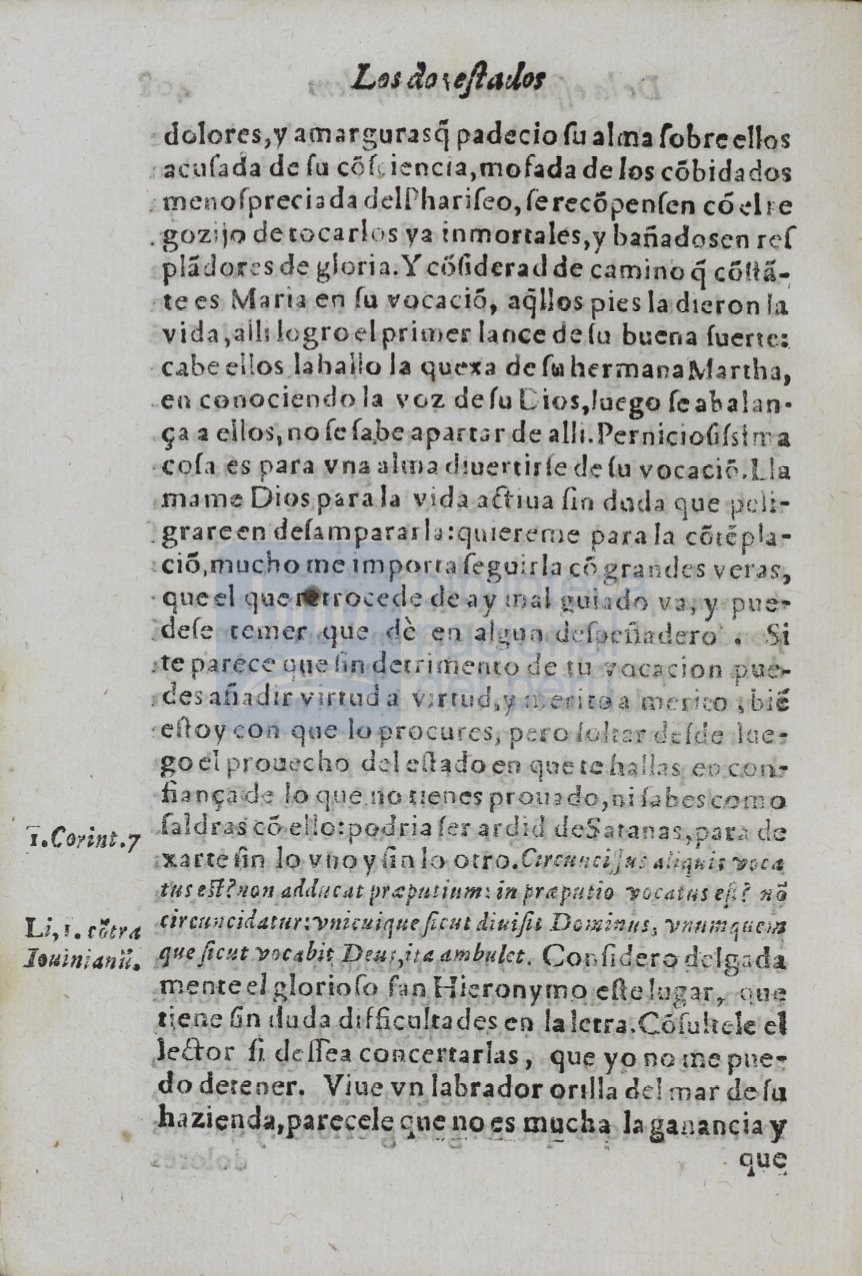 Los dos estados
dolores,y amargurasq̃ padecio ſu alma ſobre ellos
acuſada de ſu cõſciencia,mofada de los cõbidados
menoſpreciada del Phariſeo, ſe recõpenſen cõ el re
gozijo de tocarlos ya inmortales,y bañados en reſ
plãdores de gloria.Y cõſiderad de camino q̃ cõſtã-
te es Maria en ſu vocaciõ, aq̃llos pies la dieron la
vida,alli logro el primer lance de ſu buena ſuerte:
cabe ellos la hallo la quexa de ſu hermana Martha,
en conociendo la voz de ſu Dios,luego ſe abalan-
ça a ellos, no ſe ſabe apartar de alli.Pernicioſiſsima
coſa es para vna alma diuertirſe de ſu vocaciõ.Lla
mame Dios para la vida actiua ſin duda que peli-
grare en deſampararla:quiereme para la cõtẽpla-
ciõ,mucho me importa ſeguirla cõ grandes veras,
que el que retrocede de ay mal guiado va, y pue-
deſe temer que dè en algun deſpeñadero . Si
te parece que ſin detrimento de tu vocacion pue-
des añadir virtud a virtud,y merito a merito ,biẽ
eſtoy con que lo procures, pero ſoltar deſde lue-
go el prouecho del eſtado en que te hallas en con-
fiança de lo que no tienes prouado,ni ſabes como
ſaldras cõ ello:podria ſer ardid de Satanas,para de
xarte ſin lo vno y ſin lo otro.Circunciſus aliquis voca
1.Corint.7
tus eſt?non adducat præputium: in præputio vocatus eſt? nõ
circuncidatur:vnicuique ſicut diuiſit Dominus, vnumquem
que ſicut vocabit Deus,ita ambulet. Conſidero delgada
Li,1. cõtra
Iouinianũ.
mente el glorioſo ſan Hieronymo eſte lugar, que
tiene ſin duda difficultades en la letra.Cõſultele el
lector ſi deſſea concertarlas, que yo no me pue-
do detener. Viue vn labrador orilla del mar de ſu
hazienda,parecele que no es mucha la ganancia y
que